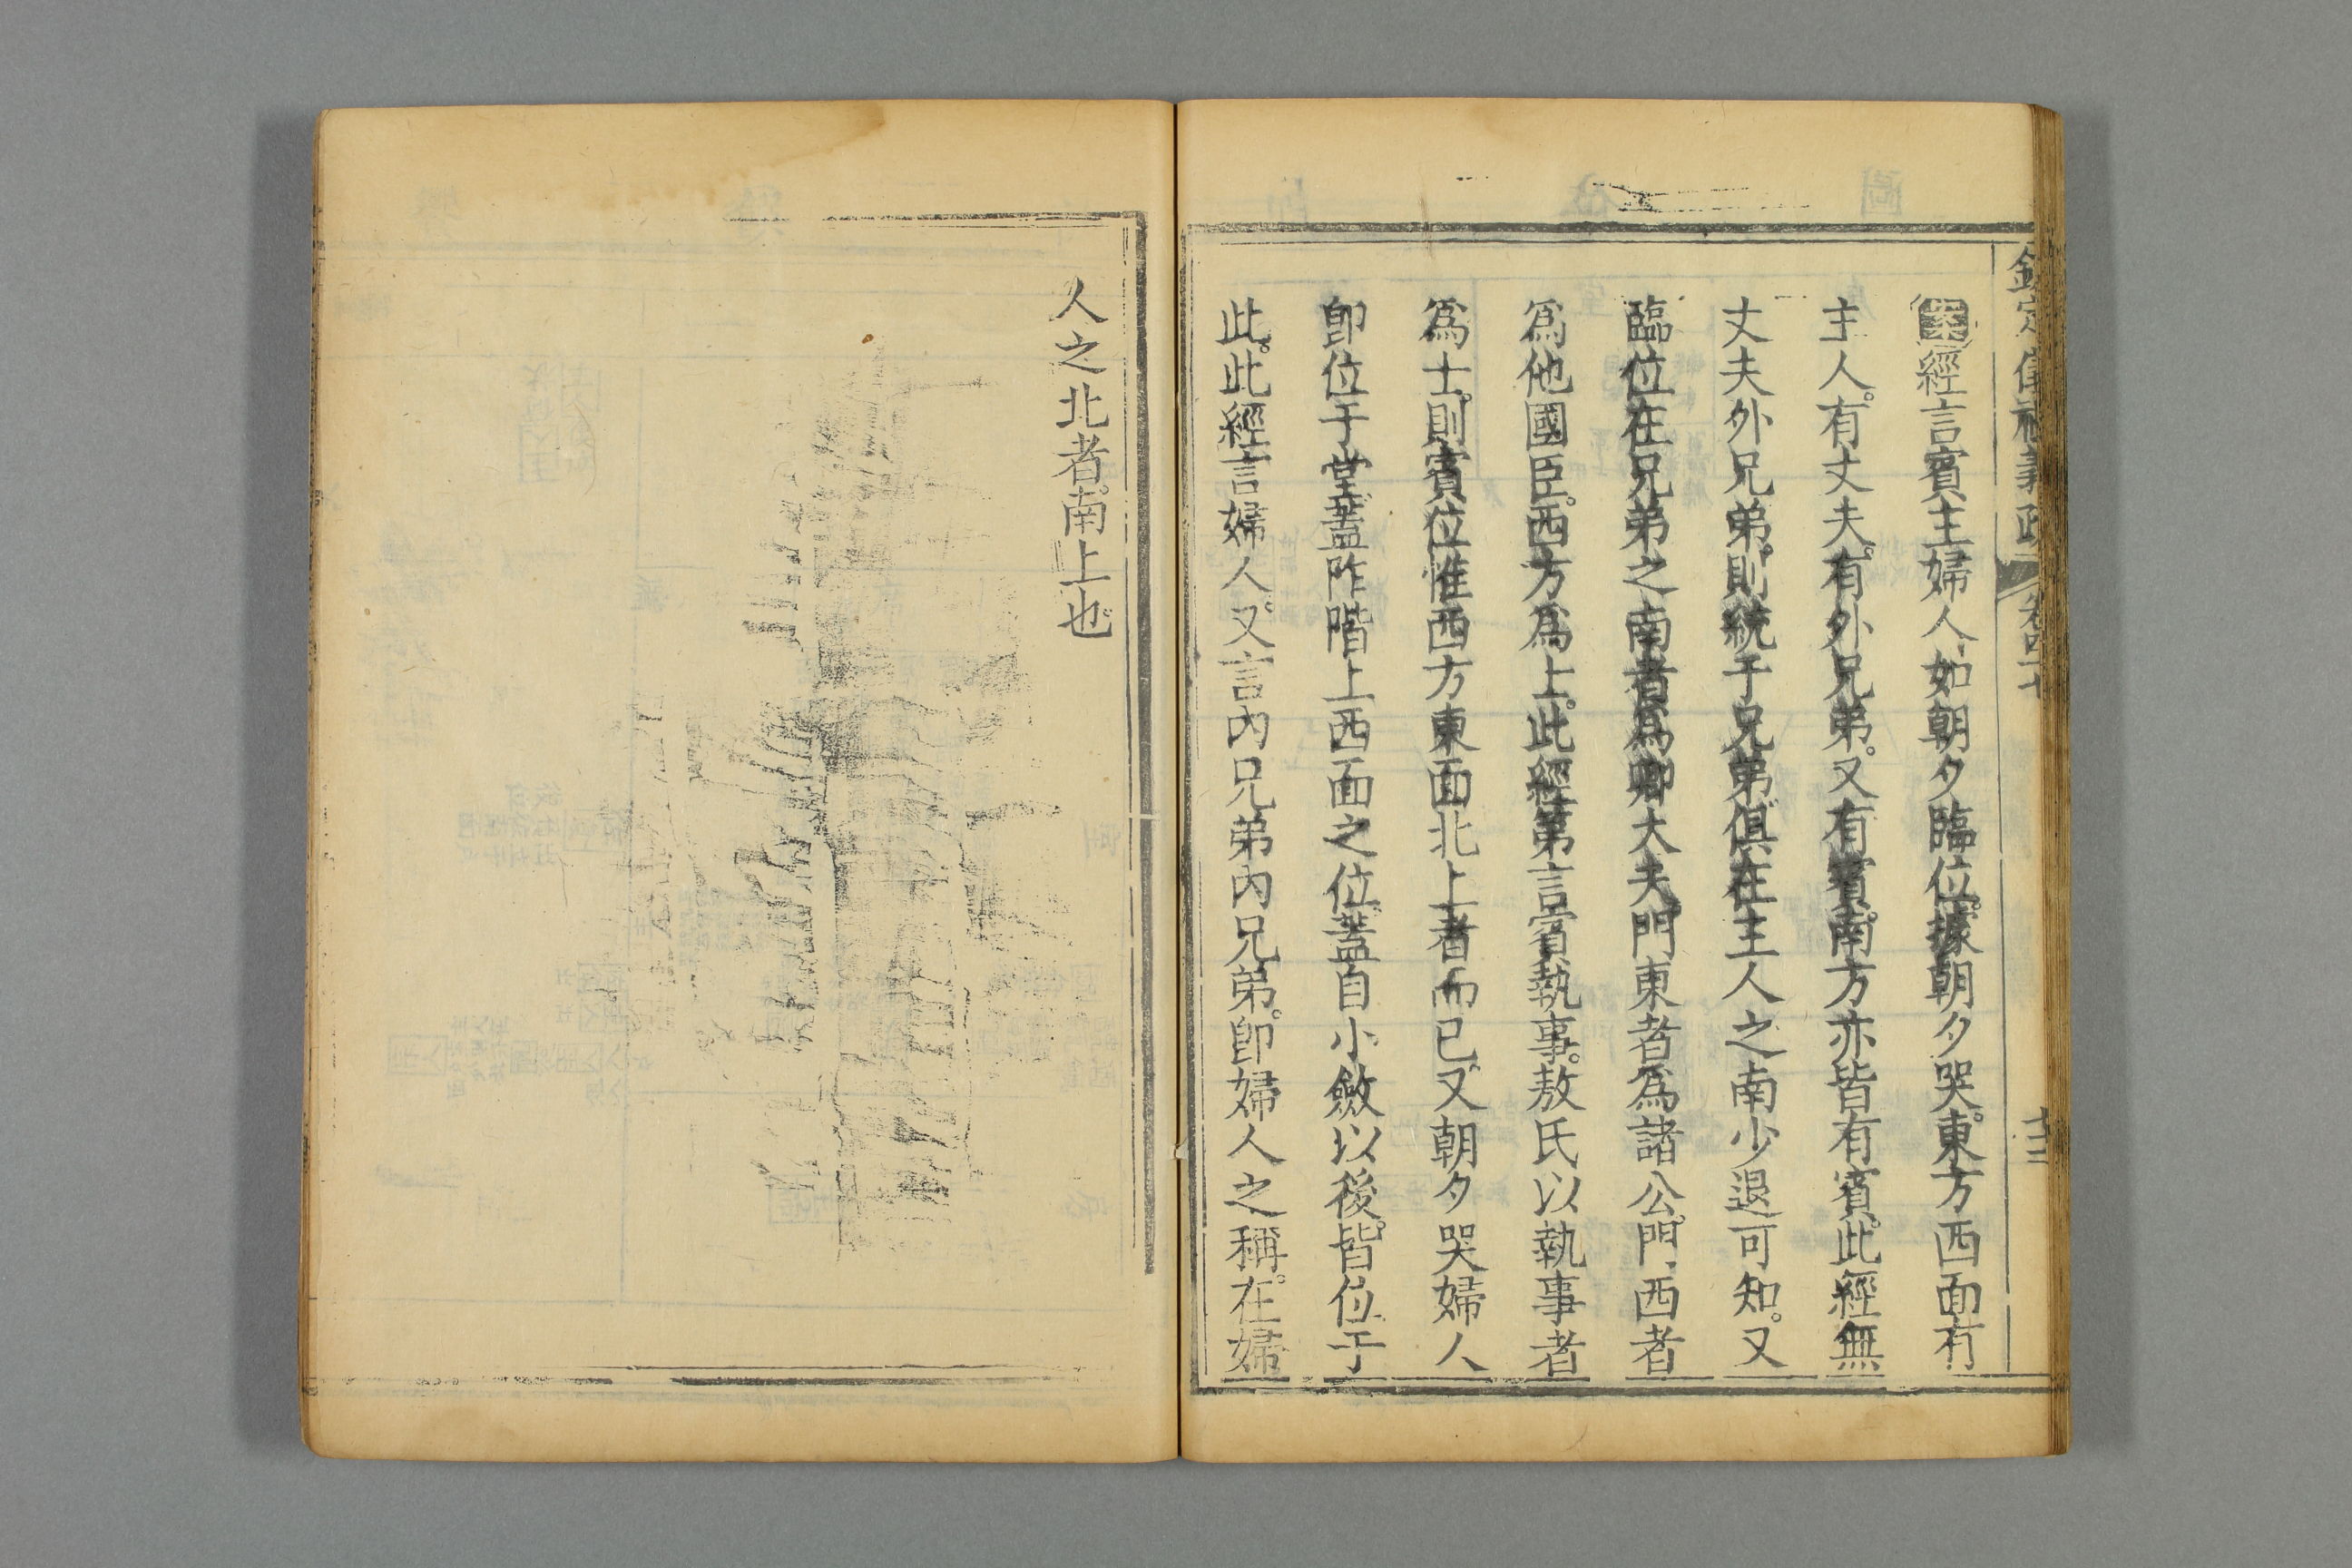 欽定儀禮義疏 卷四十 十三
案經言賓主婦人如朝夕臨位據朝夕哭東方西面有
主人有丈夫有外兄弟又有賓南方亦皆有賓此經無
丈夫外兄弟則統于兄弟俱在主人之南少退可知又
臨位在兄弟之南者為卿大夫門東者為諸公門西者
為他國臣西方為上此經第言賓執事敖氏以執事者
為士則賓位惟西方東面北上者而已又朝夕哭婦人
即位于堂蓋阼階上西面之位蓋自小斂以後皆位于
此此經言婦人又言內兄弟內兄弟即婦人之稱在婦
人之北者南上也